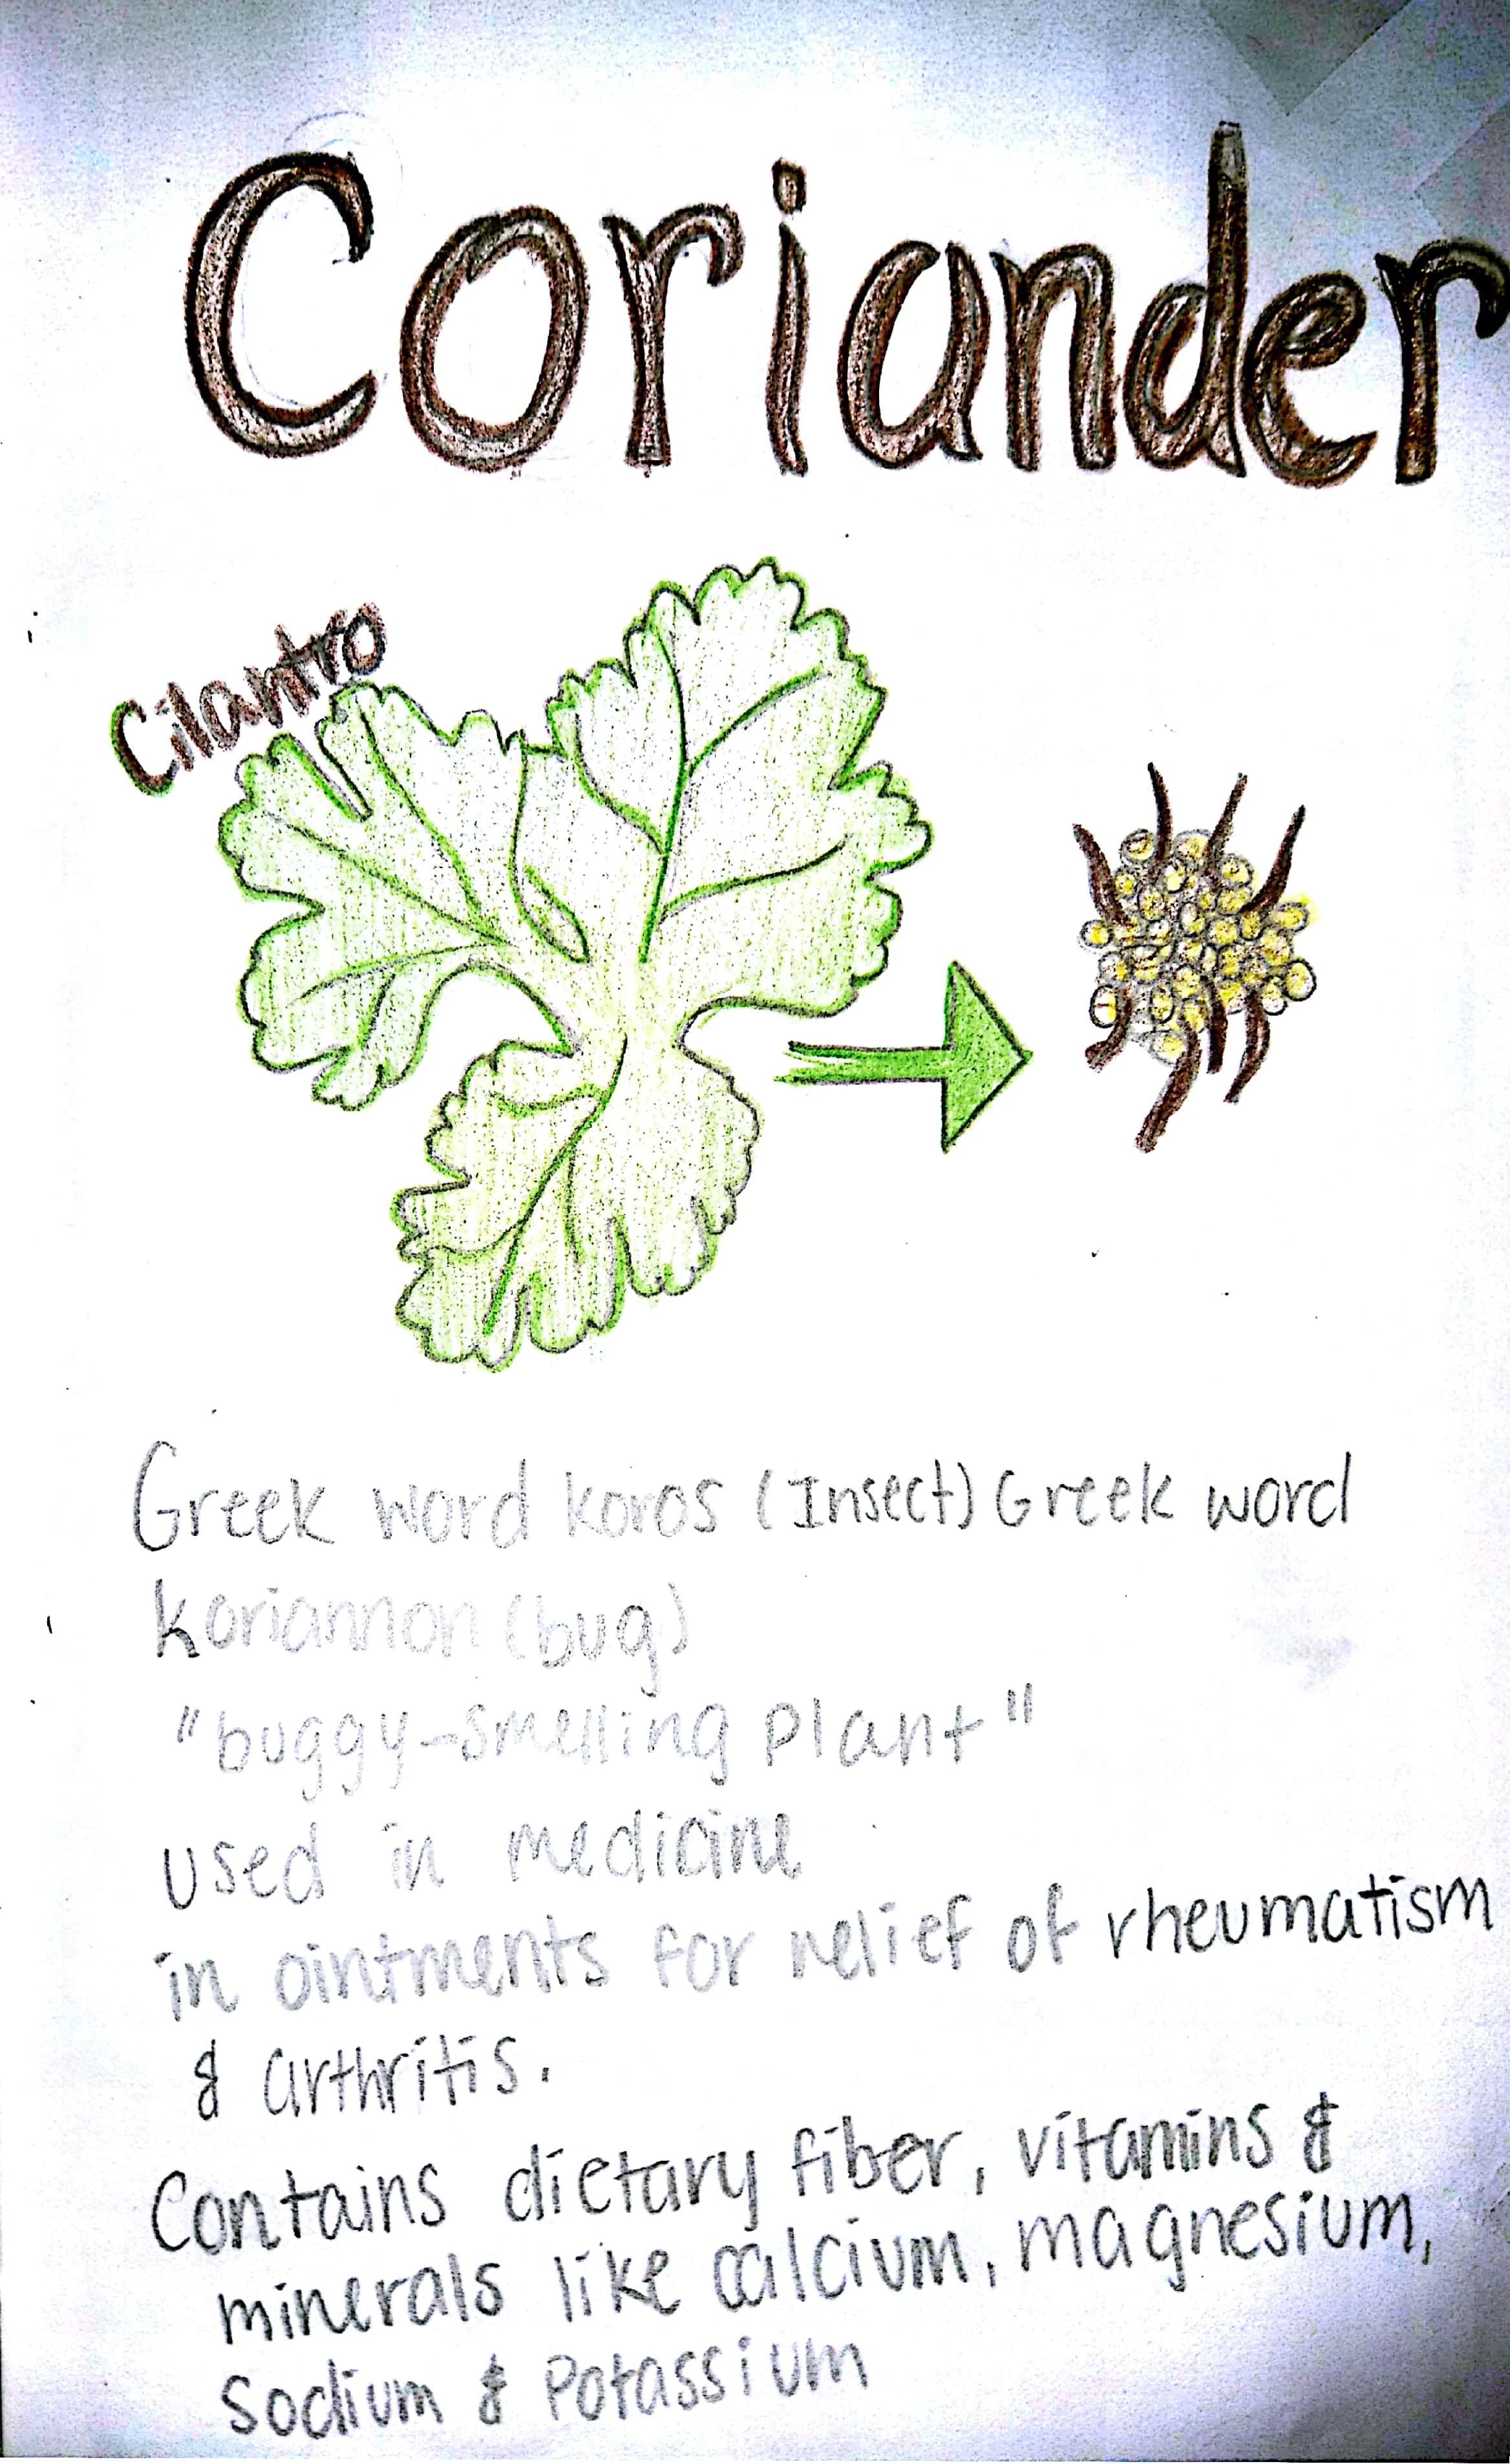 Coriander
Cilantro
Greek word koros (Insect) Greek word
koriannon (bug)
"buggy-smelling plant"
used in medicine
in ointments for relief of rheumatism
& arthritis.
Contains dietary fiber, vitamins &
minerals like calcium, magnesium,
Sodium & Potassium